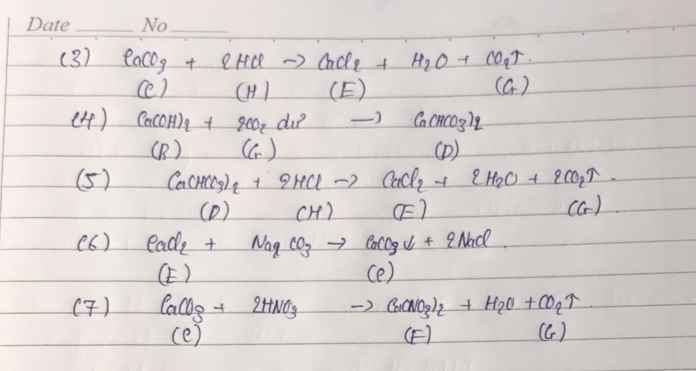 Date No
(3) CaCO3 + 2HCl → CaCl2 + H2O + CO2↑.
(C) (H) (E) (G)
(4) Ca(OH)2 + 2CO2 dư → Ca(HCO3)2
(B) (G) (D)
(5) Ca(HCO3)2 + 2HCl → CaCl2 + 2H2O + 2CO2↑.
(D) (H) (E) (G)
(6) CaCl2 + Na2CO3 → CaCO3↓ + 2NaCl.
(E) (C)
(7) CaCO3 + 2HNO3 → Ca(NO3)2 + H2O + CO2↑.
(C) (F) (G)